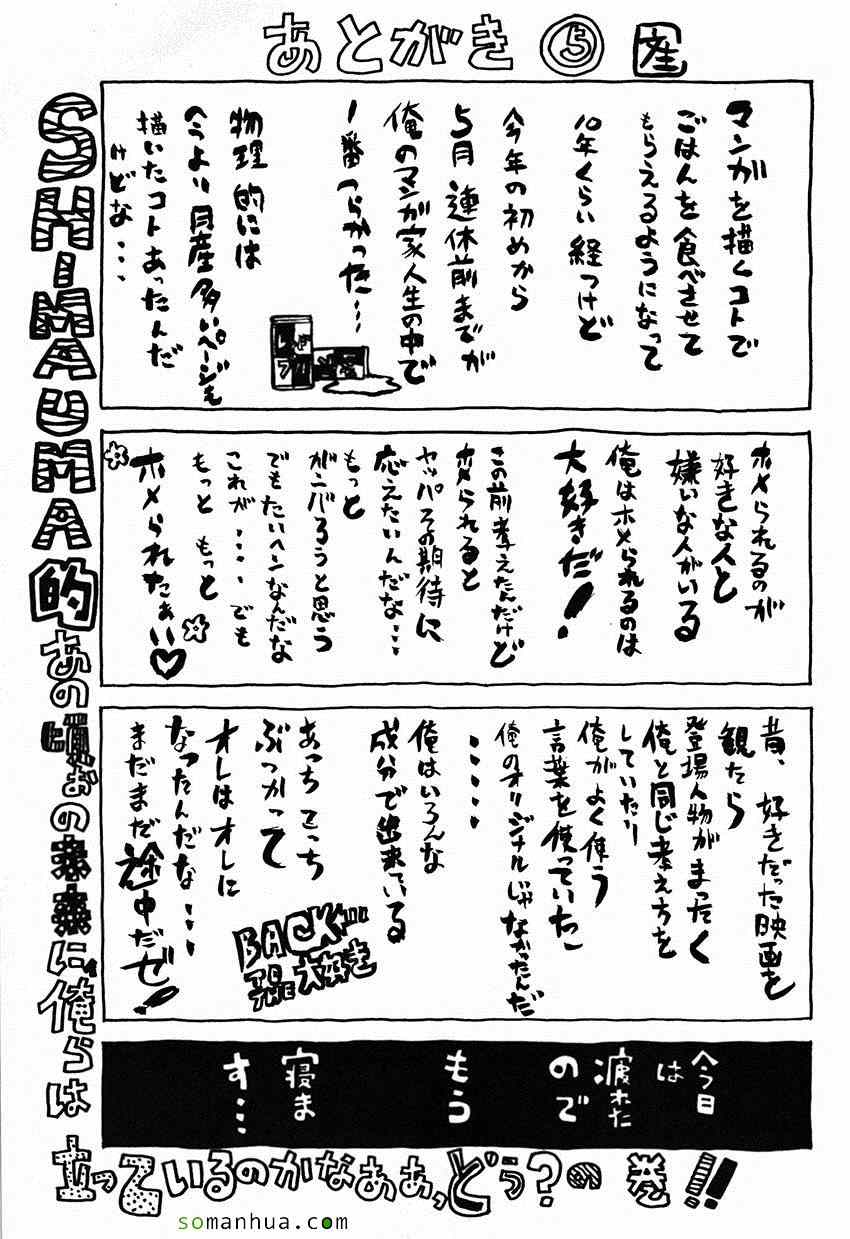 あとがき ㊄ 窪
マンガを描くコトで
ごはんを食べさせて
もらえるようになって
10年くらい経つけど
今年の初めから
5月連休前までが
俺のマンガ家人生の中で
1番つらかった…
物理的には
今より月産多いページも
描いたコトあったんだ
けどな…
ホメられるのが
好きな人と
嫌いな人がいる
俺はホメられるのは
大好きだ!
この前考えたんだけど
ホメられると
ヤッパその期待に
応えたいんだな…
もっと
ガンバろうと思う
でもたいヘンなんだな
これが…でも
もっともっと
ホメられたぁい♡
昔、好きだった映画を
観たら
登場人物がまったく
俺と同じ考え方を
していたり
俺がよく使う
言葉を使っていた
俺のオリジナルじゃなかったんだ
……
俺はいろんな
成分で出来ている
あっちこっち
ぶつかって
オレはオレに
なったんだな…
まだまだ途中だぜ!
BACK…
TO
THE 大好き
今日
は
疲れた
ので
もう
寝ま
す…
SHIMAUMA的あの頃ぉの未来に俺らは
立っているのかなぁぁっどぅ?の巻!!
somanhua.com